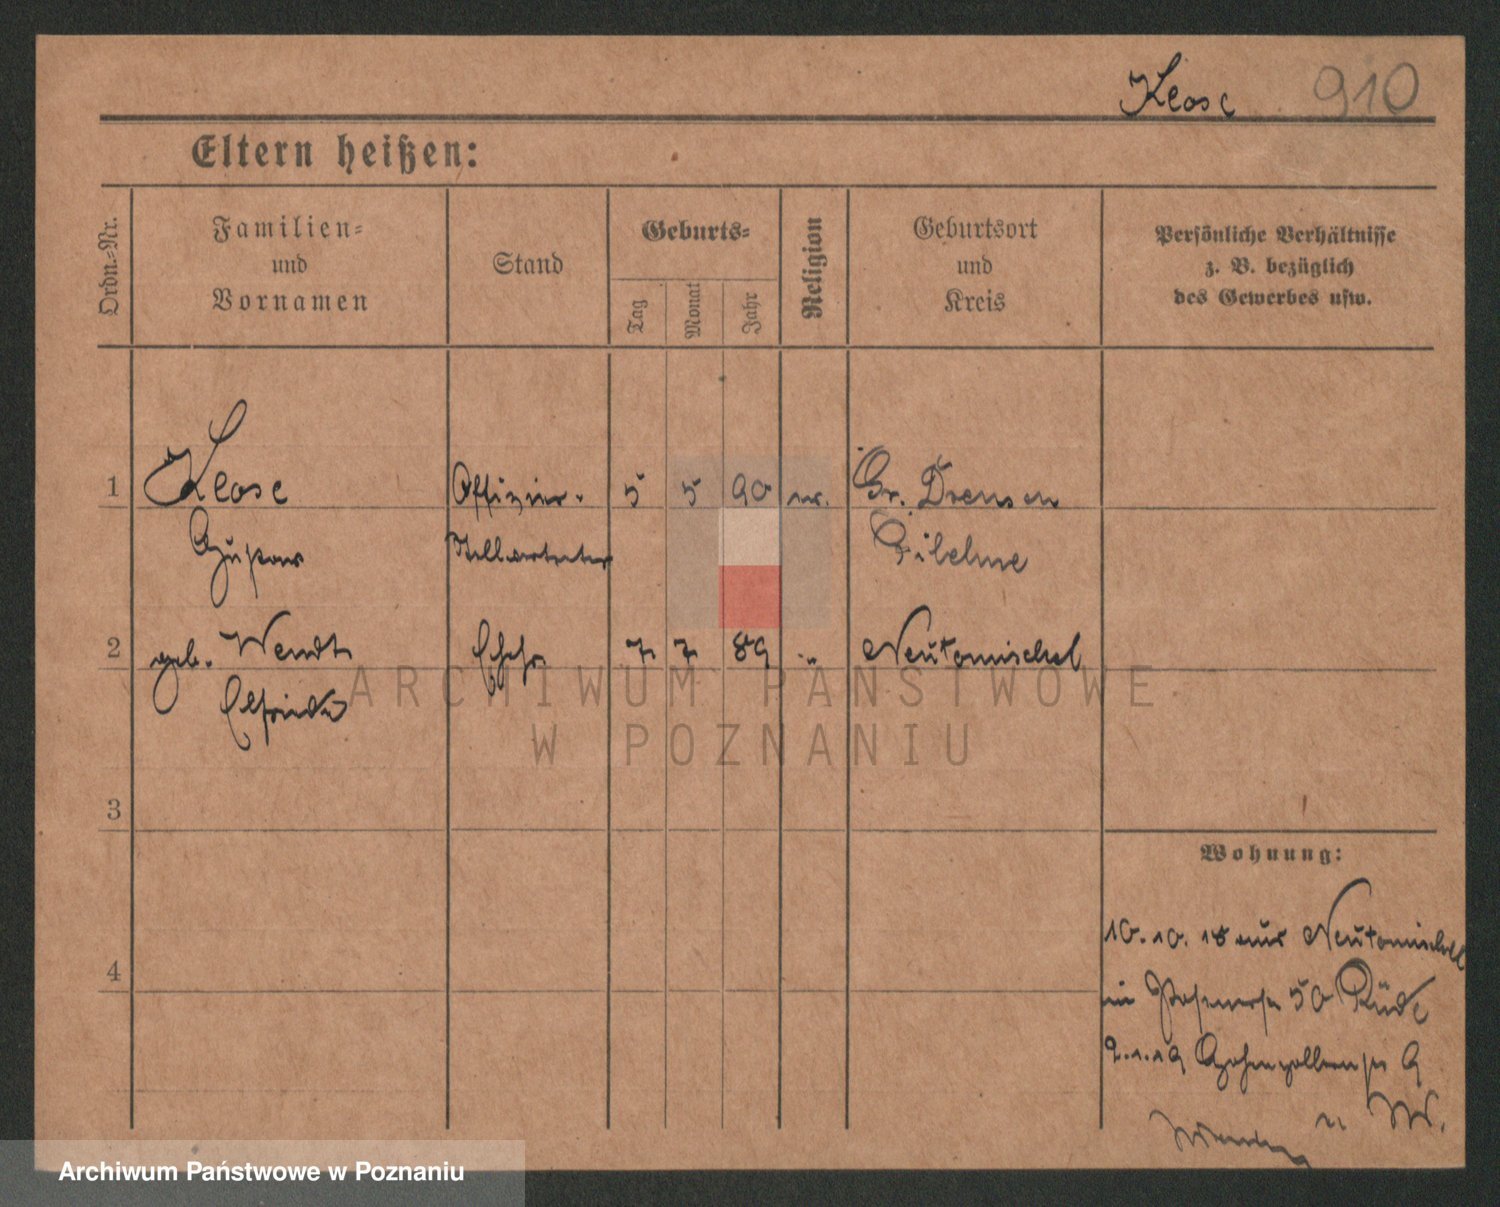 Klose 910
Eltern heißen:
Ordn.-Nr.
Familien-
und
Vornamen
Stand
Geburts-
Tag
Monat
Jahr
Religion
Geburtsort
und
Kreis
Persönliche Verhältnisse
z. B. bezüglich
des Gewerbes usw.
1 Klose Offizier- 5 5 90 Gr. Drensen
Stellvertreter Filehne
2 geb. Wendt Ehefr 7 7 89 " Neutomischel
Elfriede
3
4
Wohnung:
10.10.18 aus Neutomischel
in Posenerstr 50
2.1.19 Hohenzollernstr 9
ARCHIWUM PAŃSTWOWE
W POZNANIU
Archiwum Państwowe w Poznaniu